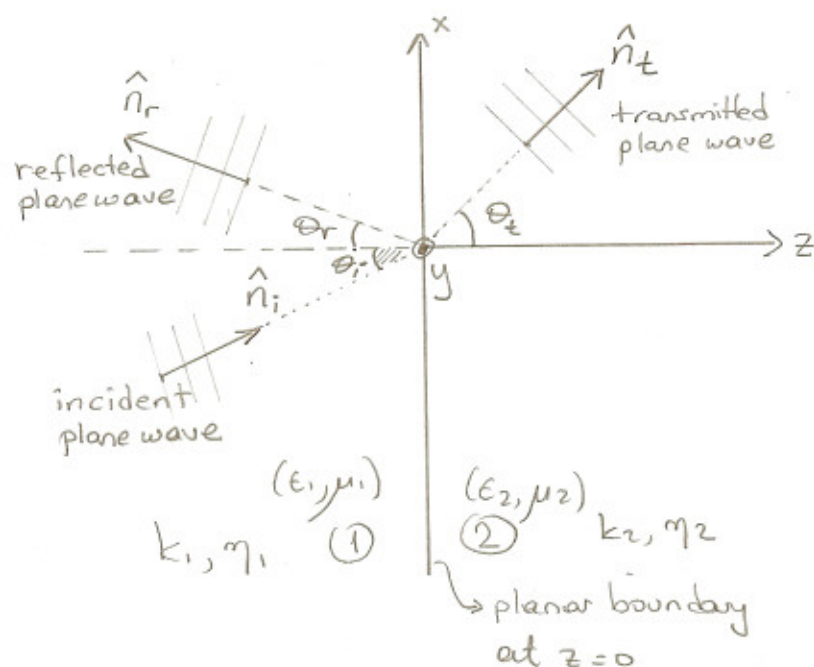 x
n̂t
transmitted
plane wave
n̂r
reflected
plane wave
θr
θt
z
θi
y
n̂i
incident
plane wave
(ε1, μ1)
(ε2, μ2)
k1, η1
1
2
k2, η2
planar boundary
at z=0